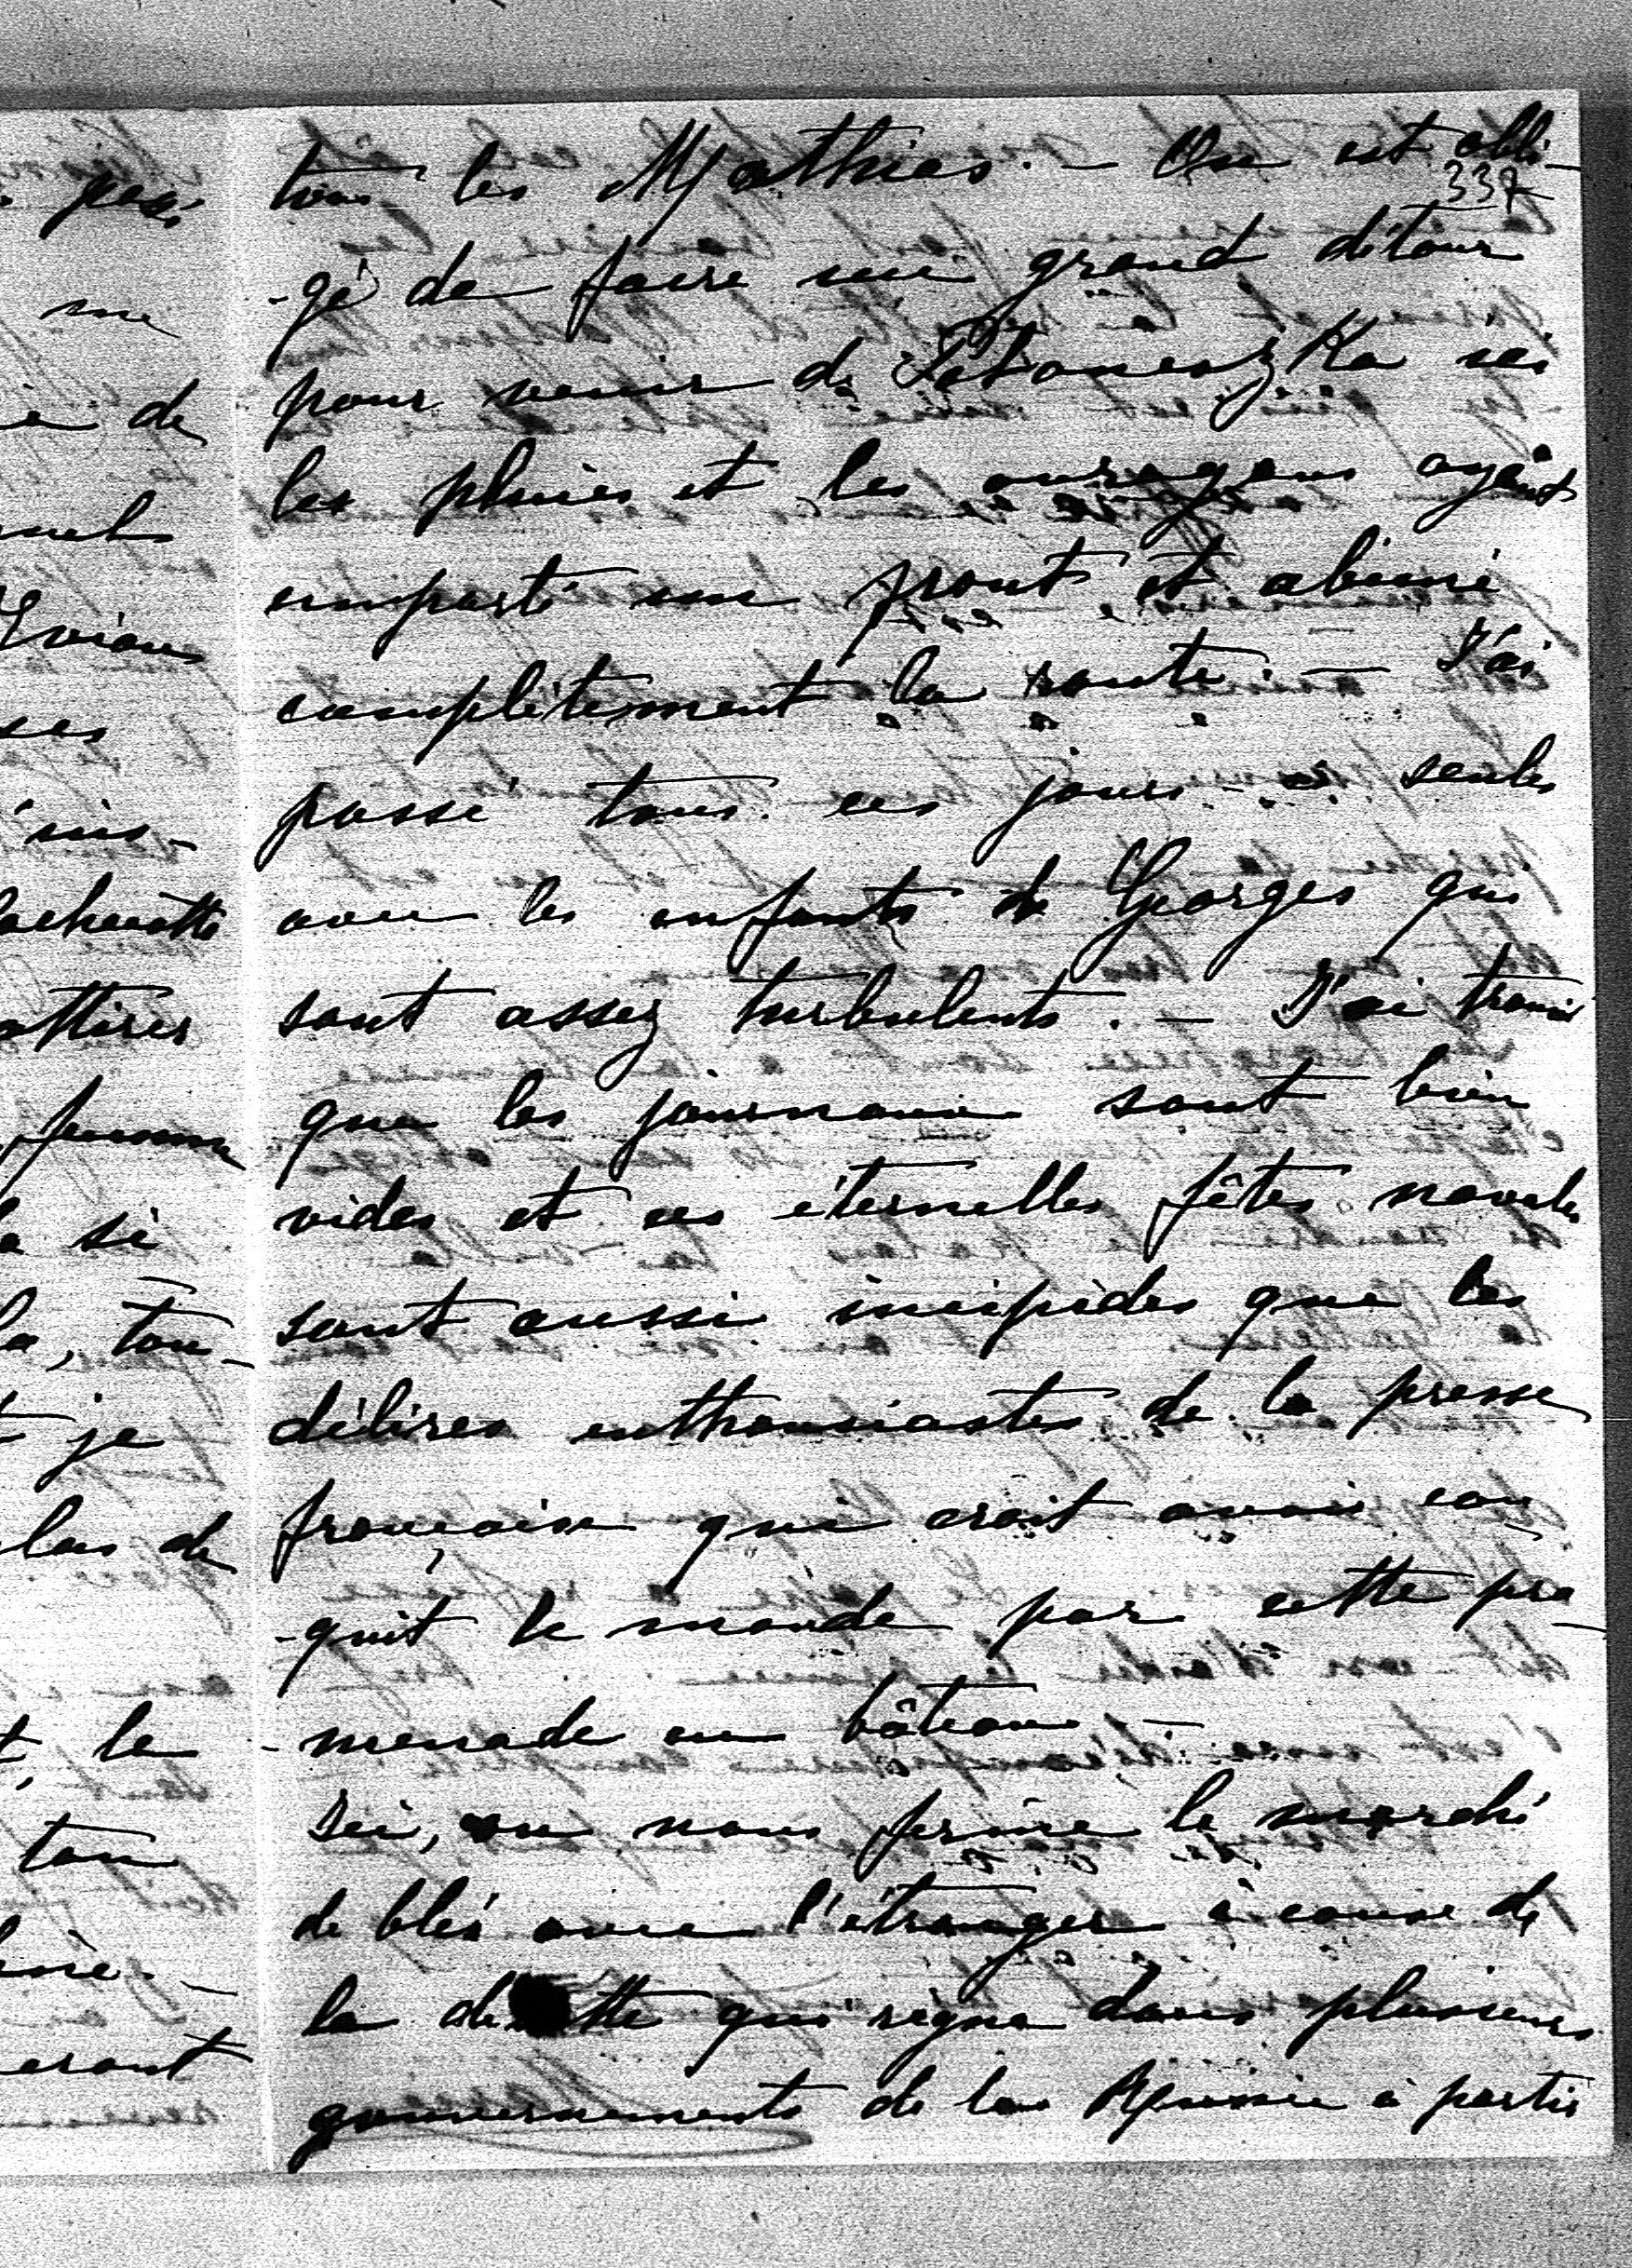 tous les Mathias. — On est obli-
337
-gé de faire un grand détour
pour venir de ici
les pluies et les ouragans ayant
emporté un pont et abimé
complètement la route. — J'ai
passé tous ces jours seule
avec les enfants de Georges qui
sont assez turbulents. — J'ai trouvé
que les journaux sont bien
vides et ces éternelles fêtes navales
sont aussi insipides que les
délires enthousiastes de la presse
française qui croit avoir con-
-quit le monde par cette pro-
-menade en bâteau —
Ici, on nous ferme le marché
de blés avec l'étranger à cause de
la disette qui règne dans plusieurs
gouvernements de la Russie à partir
pas
me
de
Evian
ses
attirer
si
la, tou-
je
de
le
ton